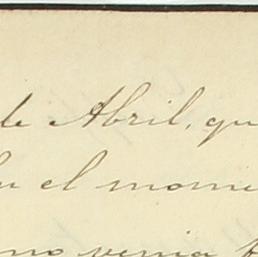 de Abril, qu
el mome
no venia f